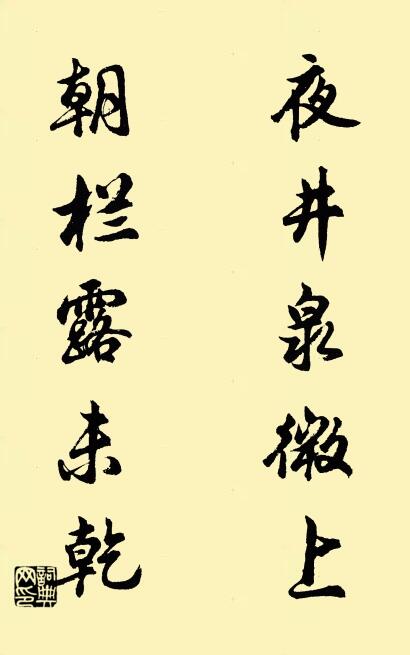 夜井泉微上
朝栏露未乾
詞典网印